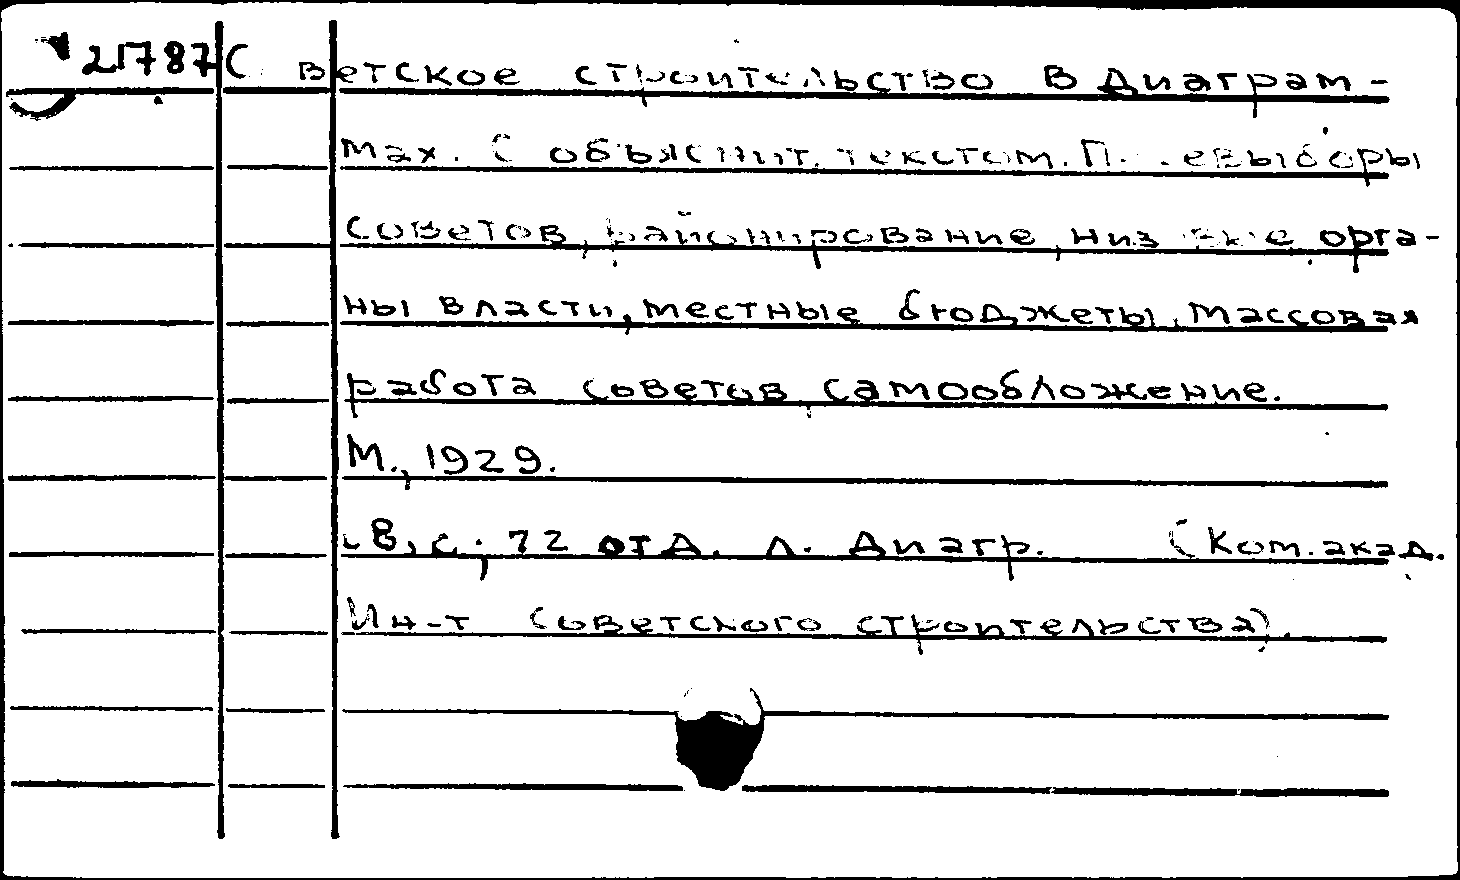 21787 Советское строительство в диаграм-
мах. С объяснит. текстом. Перевыборы
советов, районирование, низовые орга-
ны власти, местные бюджеты, массовая
работа советов, самообложение.
М., 1929.
8, с.; 72 отд. л. диагр. (Ком. акад.
Ин-т советского строительства).